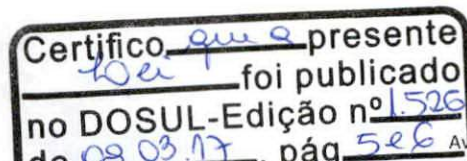 Certifico que a presente
Lei foi publicado
no DOSUL-Edição nº 1.526
de 08.03.17, pág 5 e 6